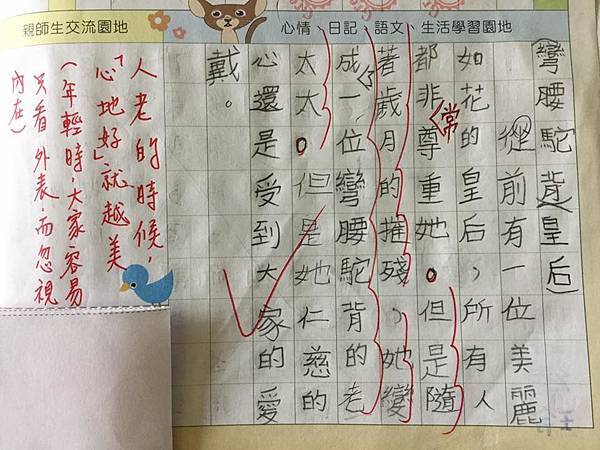 親師生交流園地
心情、日記、語文、生活學習園地
彎腰駝背皇后
從前有一位美麗
如花的皇后，所有人
都非常尊重她。但是隨
著歲月的摧殘，她變
成一位彎腰駝背的老
太太。但是她仁慈的
心還是受到大家的愛
戴。
人老的時候，
「心地好」就越美
(年輕時，大家容易
只看外表，而忽視
內在)